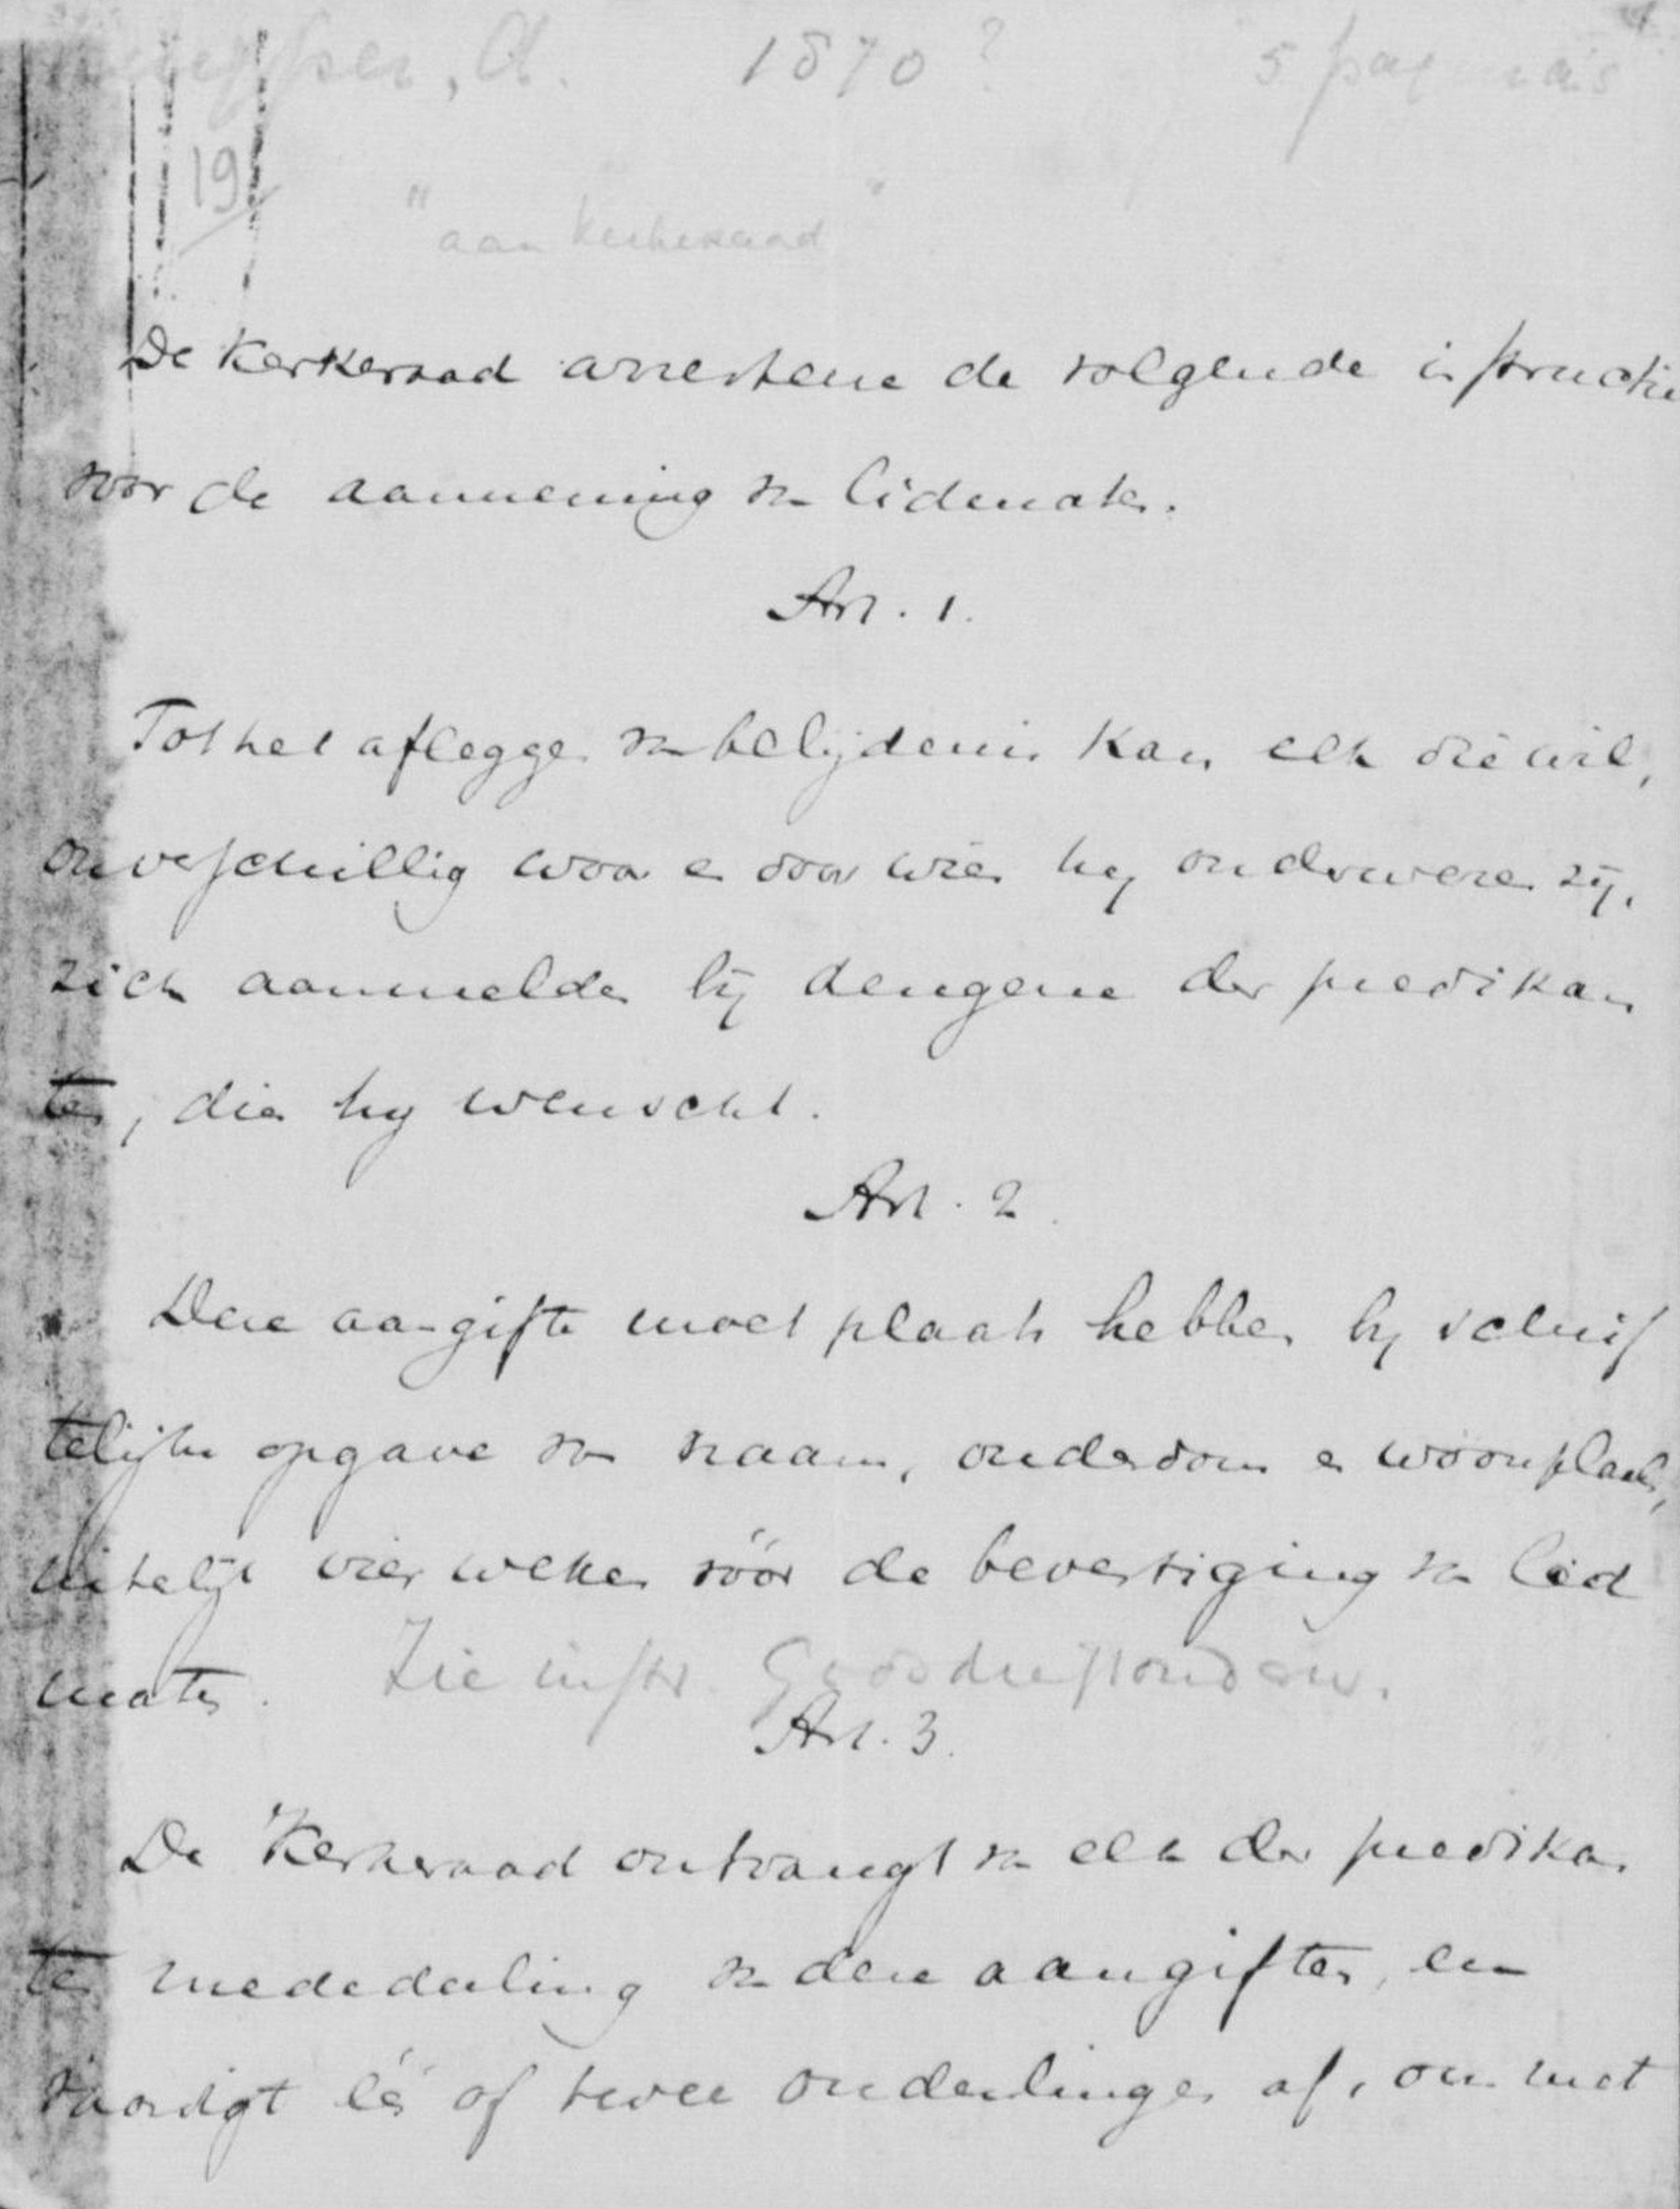 1870? 5 pagina's
19
"aan kerkeraad"
De Kerkeraad arresteere de volgende instructie
voor de aanneming van lidmaten.
Art. 1.
Tot het afleggen van belijdenis kan elk die wil,
onverschillig waar en door wien hij onderwezen zij,
zich aanmelden bij dengene der predikan
ten, die hij wenscht.
Art. 2.
Deze aangifte moet plaats hebben bij schrif
telijke opgave van naam, ouderdom en woonplaats,
uiterlijk vier weken vóór de bevestiging van lid
maten. Zie instr.
Art. 3.
De Kerkeraad ontvangt van elk der predikan
ten mededeeling van deze aangiften, en
vaardigt één of twee ouderlingen af, om met